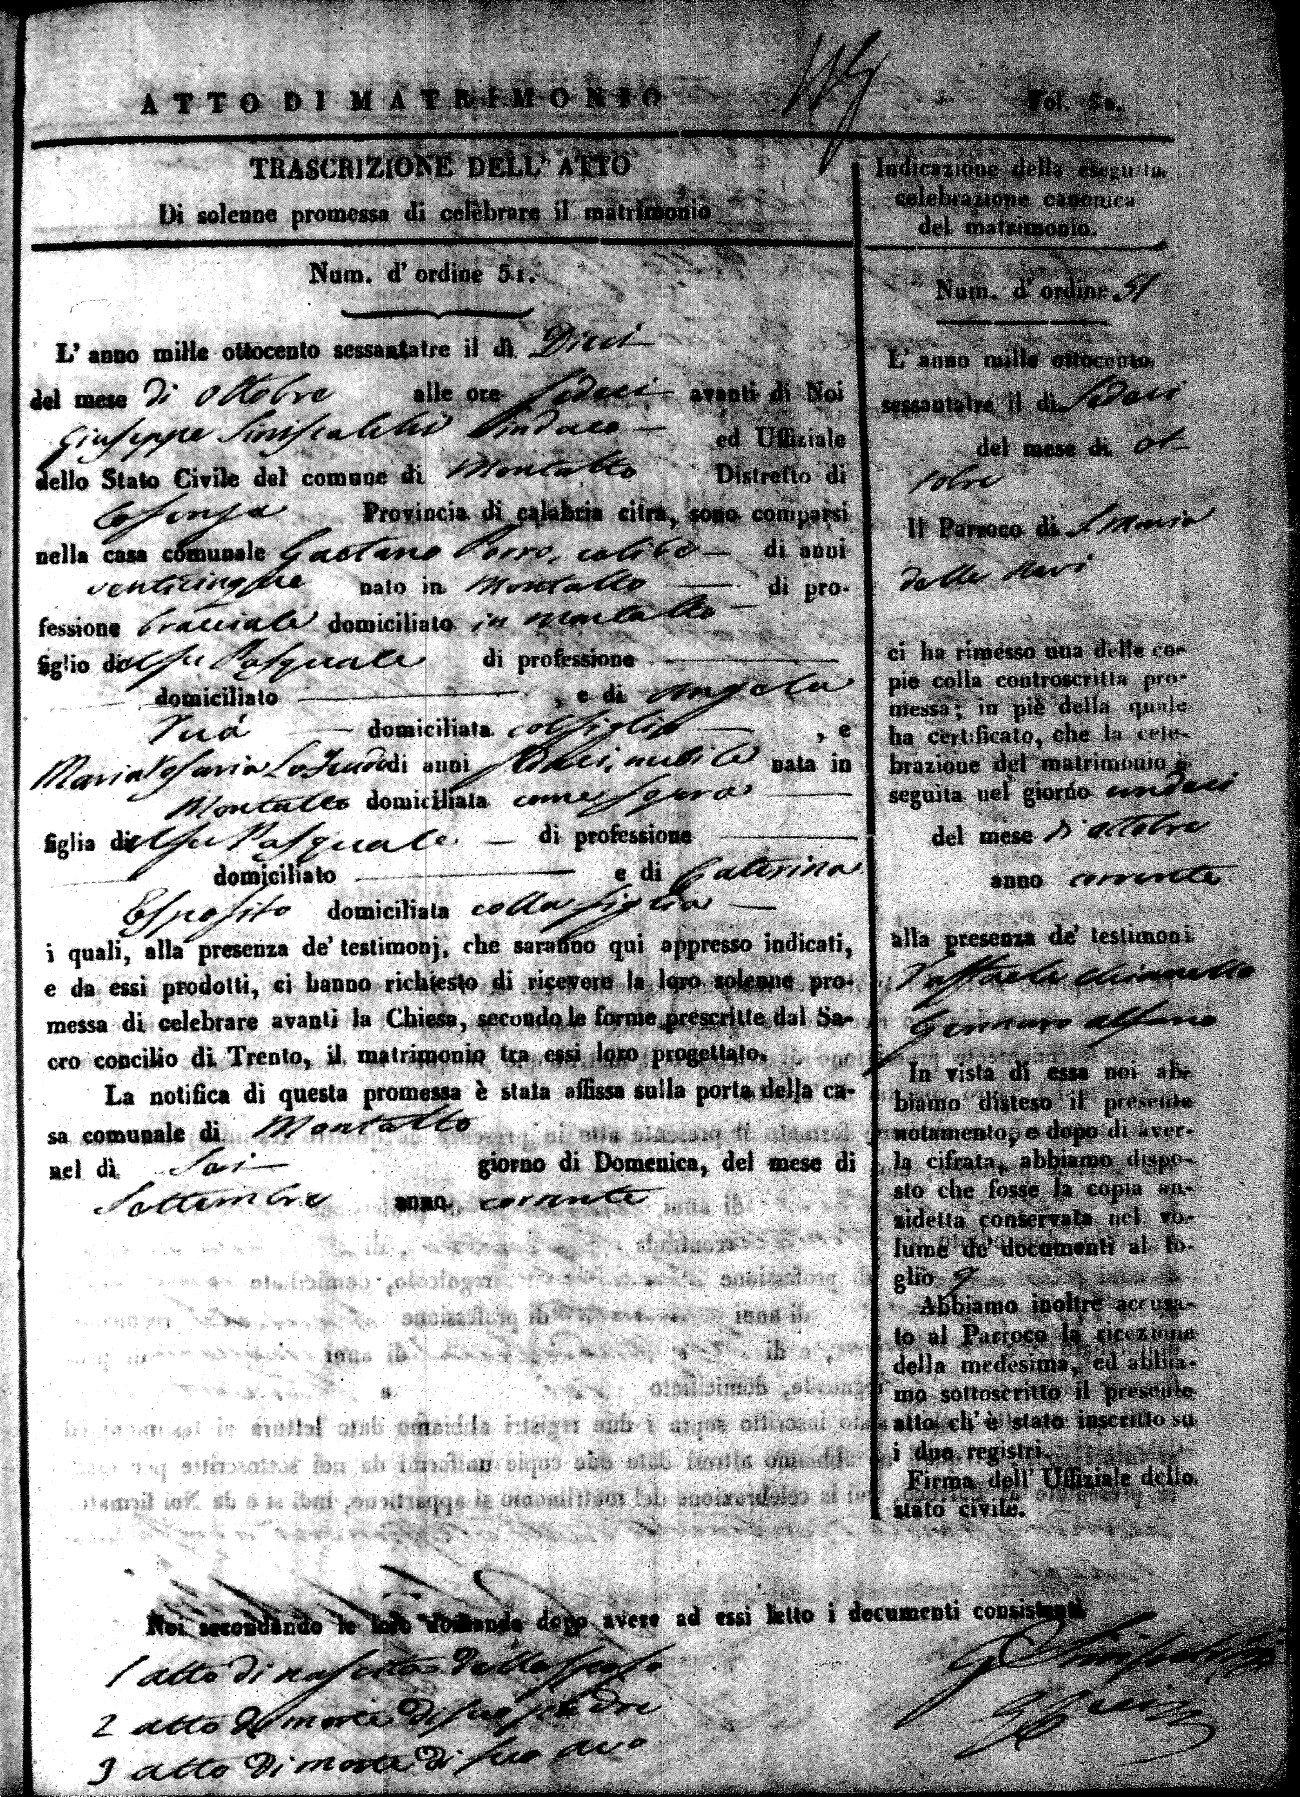 ATTO DI MATRIMONIO
Vol. Un.
TRASCRIZIONE DELL' ATTO
Di solenne promessa di celebrare il matrimonio
Num. d' ordine 51.
L' anno mille ottocento sessantatre il dì Dieci
del mese di Ottobre alle ore Sedeci avanti di Noi
Giuseppe Siniscalchi Sindaco ed Uffiziale
dello Stato Civile del comune di Montalto Distretto di
Cosenza Provincia di calabria citra, sono comparsi
nella casa comunale Gaetano Porro, celibe di anni
venticinque nato in Montalto di pro-
fessione bracciale domiciliato in Montalto
figlio del fu Pasquale di professione
domiciliato , e di Angela
domiciliata col figlio , e
Maria Rosaria Lo di anni nubile nata in
Montalto domiciliata come sopra
figlia del fu Pasquale di professione
domiciliato e di Caterina
Esposito domiciliata colla figlia
i quali, alla presenza de' testimonj, che saranno qui appresso indicati,
e da essi prodotti, ci hanno richiesto di ricevere la loro solenne pro-
messa di celebrare avanti la Chiesa, secondo le forme prescritte dal Sa-
cro concilio di Trento, il matrimonio tra essi loro progettato.
La notifica di questa promessa è stata affissa sulla porta della ca-
sa comunale di Montalto
nel dì Sei giorno di Domenica, del mese di
Settembre anno corrente
Noi secondando le loro domande dopo avere ad essi letto i documenti consistenti
1 atto di nascita dello sposo
2 atto di morte di suo padre
3 atto di morte di suo avo
Indicazione della eseguita
celebrazione canonica
del matrimonio.
Num. d' ordine 51
L' anno mille ottocento
sessantatre il dì Sedeci
del mese di ot-
tobre
Il Parroco di S. Maria
della Nevi
ci ha rimesso una delle co-
pie colla controscritta pro-
messa; in piè della quale
ha certificato, che la cele-
brazione del matrimonio è
seguita nel giorno undeci
del mese di ottobre
anno corrente
alla presenza de' testimoni
Raffaele
Gennaro Alfano
In vista di essa noi ab-
biamo disteso il presente
notamento, e dopo di aver-
la cifrata, abbiamo dispo-
sto che fosse la copia an-
zidetta conservata nel vo-
lume de' documenti al fo-
glio 9
Abbiamo inoltre accusa-
to al Parroco la ricezione
della medesima, ed abbia-
mo sottoscritto il presente
atto ch' è stato inscritto su
i due registri.
Firma dell' Uffiziale dello
stato civile.
G Siniscalchi